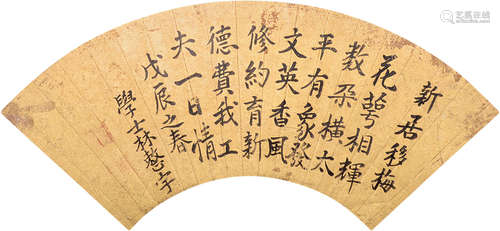 新居移梅
花萼相輝
數朶横太
平有象發
文英香風
修約育新
德費我工
夫一日情
戊辰之春
學士林愁宇